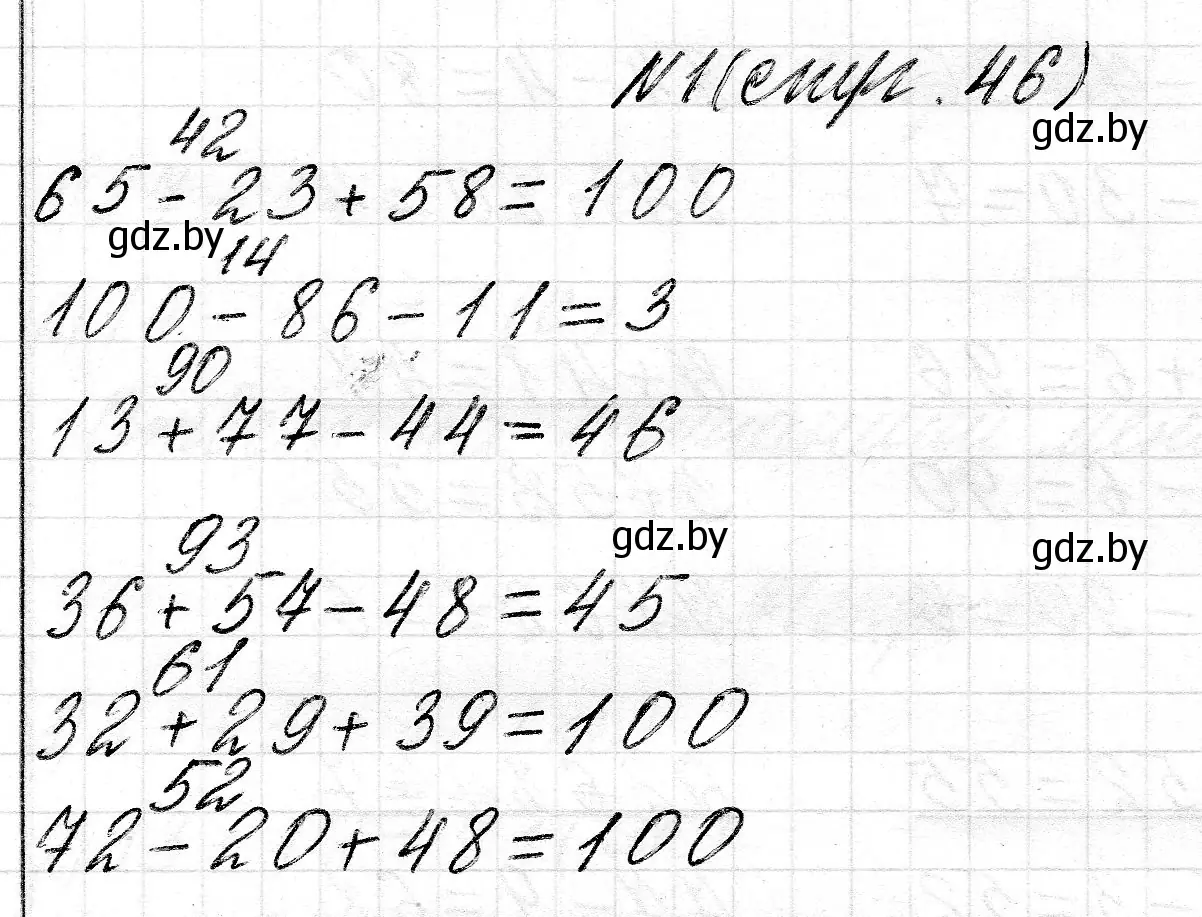 N1 (стр. 46)
gdz.by
42
65 - 23 + 58 = 100
gdz.by
14
100 - 86 - 11 = 3
90
13 + 77 - 44 = 46
93
gdz.by
gdz.by
36 + 57 - 48 = 45
61
32 + 29 + 39 = 100
52
72 - 20 + 48 = 100